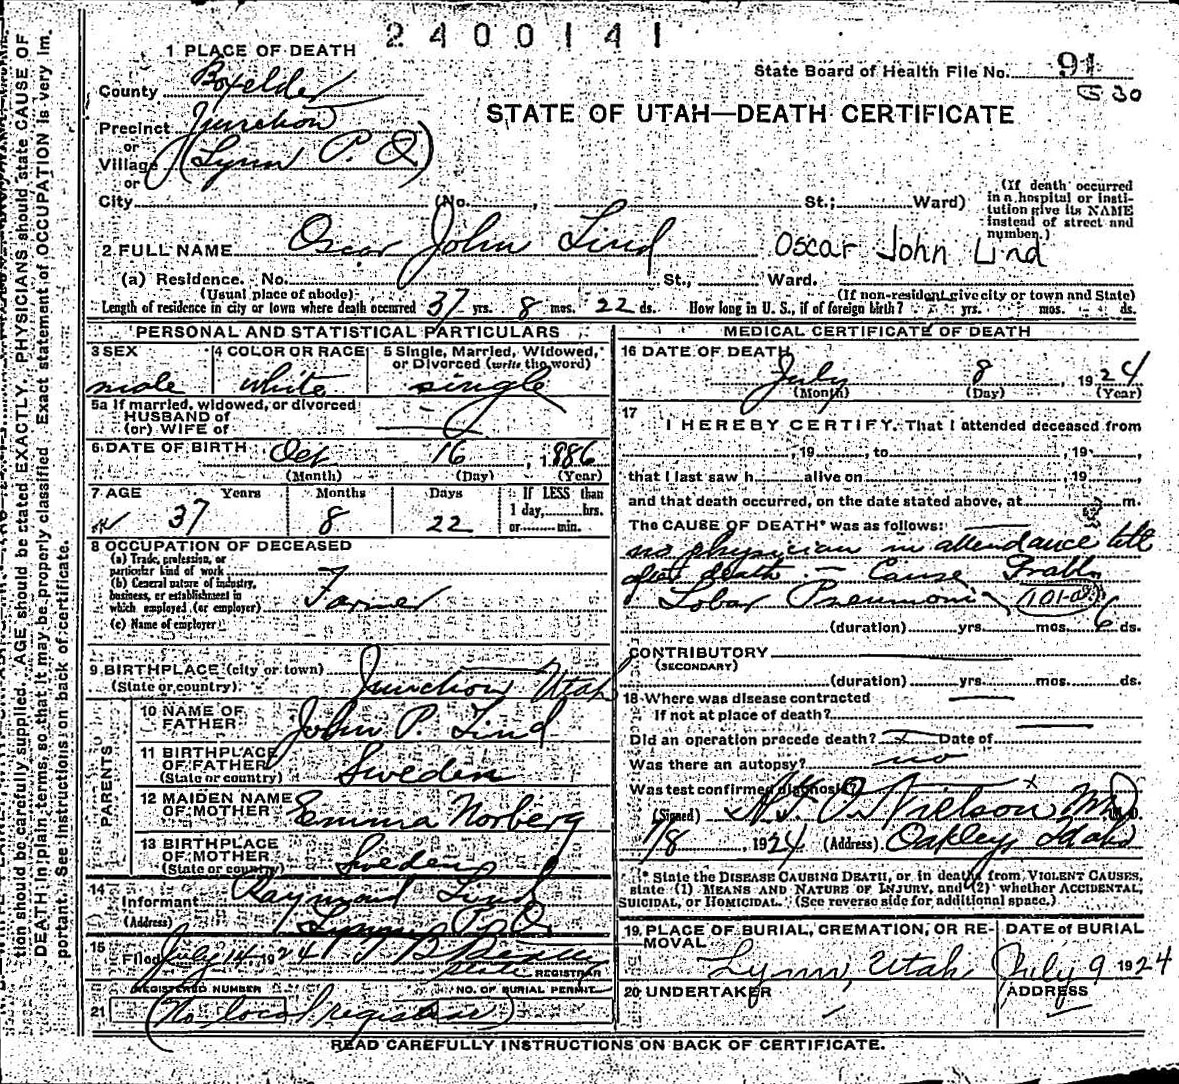 2400141
1 PLACE OF DEATH
State Board of Health File No. 91
30
County Boxelder
STATE OF UTAH—DEATH CERTIFICATE
Precinct Junction
or
Village (Lynn P. O)
or
City (No. , St.; Ward)
(If death occurred in a hospital or institution give its NAME instead of street and number.)
2 FULL NAME Oscar John Lind Oscar John Lind
(a) Residence. No. St., Ward.
(Usual place of abode) (If non-resident give city or town and State)
Length of residence in city or town where death occurred 37 yrs. 8 mos. 22 ds. How long in U. S., if of foreign birth? yrs. mos. ds.
PERSONAL AND STATISTICAL PARTICULARS
3 SEX male
4 COLOR OR RACE white
5 Single, Married, Widowed, or Divorced (write the word) single
5a If married, widowed, or divorced
HUSBAND of
(or) WIFE of
6 DATE OF BIRTH Oct 16, 1886
(Month) (Day) (Year)
7 AGE Years Months Days If LESS than 1 day, hrs. or min.
37 8 22
8 OCCUPATION OF DECEASED
(a) Trade, profession, or particular kind of work
(b) General nature of industry, business, or establishment in which employed (or employer)
Farmer
(c) Name of employer
9 BIRTHPLACE (city or town) Junction Utah
(State or country)
PARENTS
10 NAME OF FATHER John P. Lind
11 BIRTHPLACE OF FATHER (State or country) Sweden
12 MAIDEN NAME OF MOTHER Emma Norberg
13 BIRTHPLACE OF MOTHER (State or country) Sweden
14 Informant Raymond Lind
(Address) Lynn P. O.
15 Filed July 14, 1924
State REGISTRAR
REGISTERED NUMBER NO. OF BURIAL PERMIT
21 (No local registrar)
MEDICAL CERTIFICATE OF DEATH
16 DATE OF DEATH
July 8, 1924
(Month) (Day) (Year)
17 I HEREBY CERTIFY, That I attended deceased from
, 19 , to , 19 ,
that I last saw h alive on , 19 ,
and that death occurred, on the date stated above, at m.
The CAUSE OF DEATH* was as follows:
no physician in attendance till
after death — Cause Prabl.
Lobar Pneumoni 101-a
(duration) yrs. mos. 6 ds.
CONTRIBUTORY
(SECONDARY)
(duration) yrs. mos. ds.
18 Where was disease contracted
If not at place of death?
Did an operation precede death? Date of
Was there an autopsy? no
Was test confirmed diagnosis? x
(Signed) Nielson M.D.
7/8, 1924 (Address) Oakley Idaho
* State the DISEASE CAUSING DEATH, or in deaths from VIOLENT CAUSES, state (1) MEANS AND NATURE OF INJURY, and (2) whether ACCIDENTAL, SUICIDAL, or HOMICIDAL. (See reverse side for additional space.)
19 PLACE OF BURIAL, CREMATION, OR REMOVAL Lynn, Utah
DATE of BURIAL July 9 1924
20 UNDERTAKER
ADDRESS
READ CAREFULLY INSTRUCTIONS ON BACK OF CERTIFICATE.
tion should be carefully supplied. AGE should be stated EXACTLY. PHYSICIANS should state CAUSE OF
DEATH in plain terms, so that it may be properly classified. Exact statement of OCCUPATION is very im-
portant. See instructions on back of certificate.